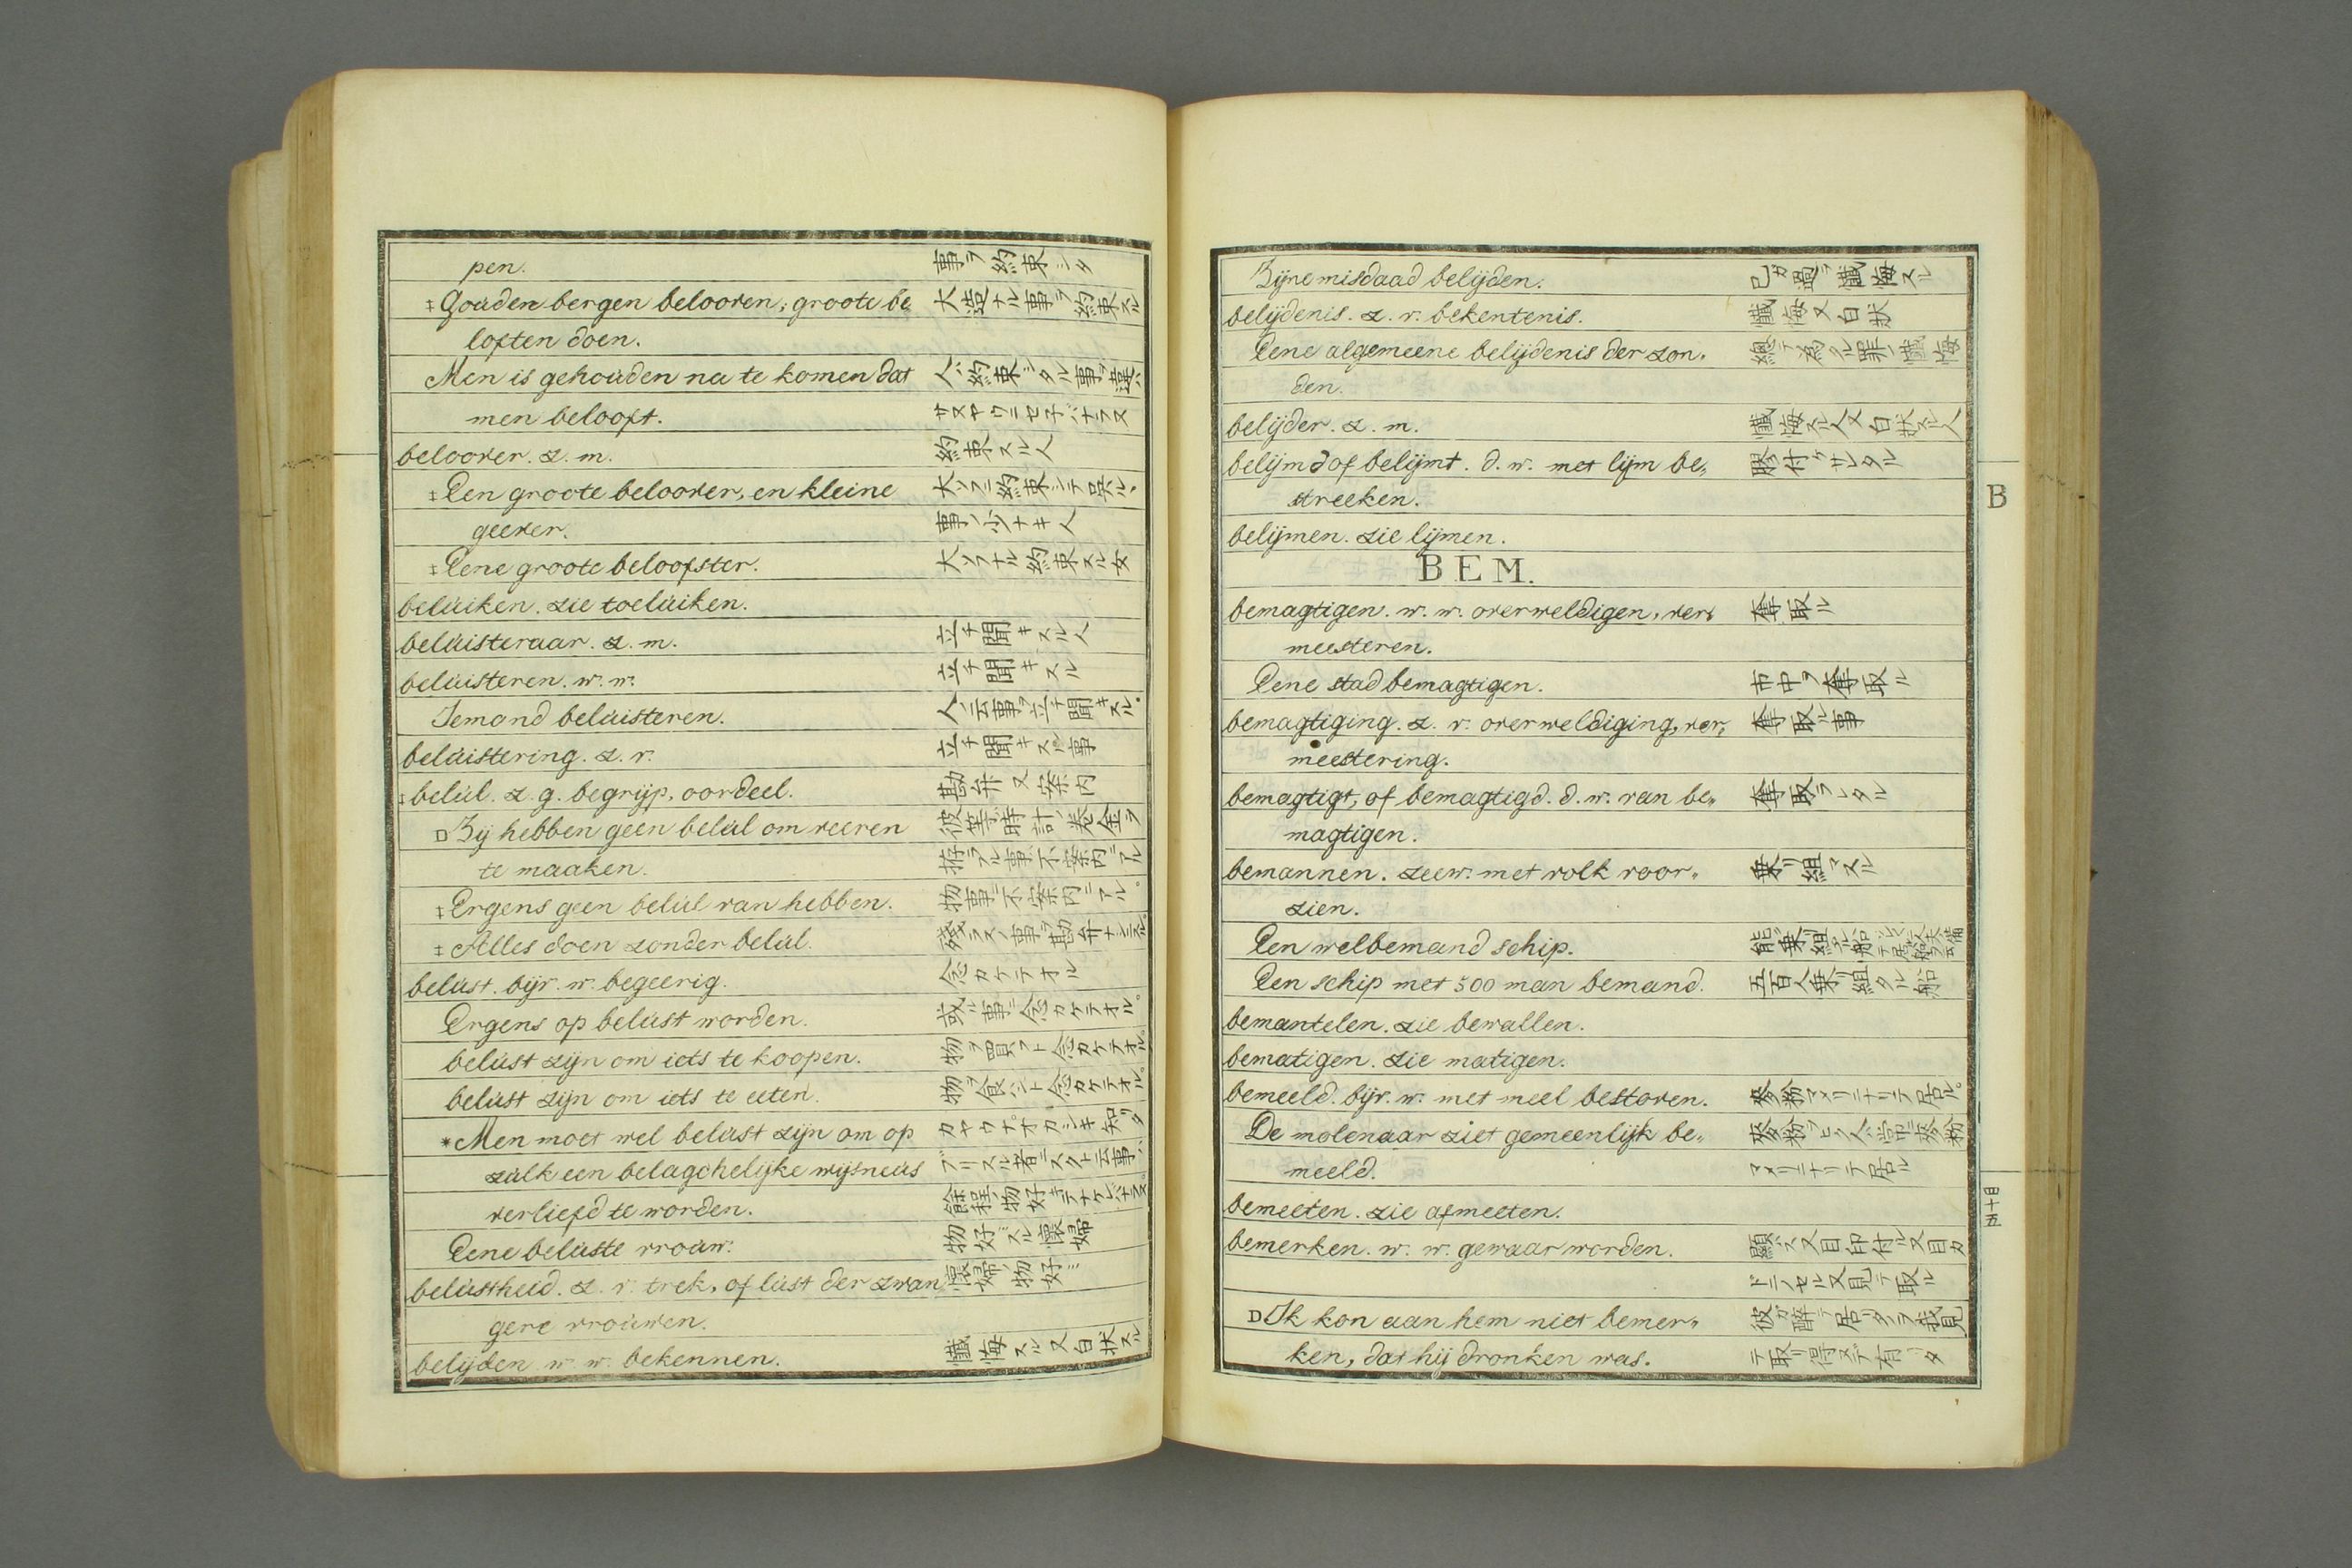 pen. 事ヲ約束シタ
‡Gouden bergen belooven; groote be 大造ナル事ヲ約束スル
loften doen.
Men is gehouden na te komen dat 人ハ約束シタル事ヲ違ハ
men belooft. サヌヤウニセ子バナラヌ
beloover. z. m. 約束スル人
‡Een groote beloover, en kleine 大ソウニ約束シテ呉ル、
geever. 事ノ少ナキ人
‡Eene groote beloofster. 大ソウナル約束スル女
beluiken. zie toeluiken.
beluisteraar. z. m. 立チ聞キスル人
beluisteren. w. w. 立チ聞キスル
Iemand beluisteren. 人ノ云事ヲ立チ聞キスル。
beluistering. z. v. 立チ聞キスル事
‡belul. z. g. begrijp, oordeel. 勘弁又案内
□Zij hebben geen belul om veeren 彼等ハ時計ノ巻金ヲ
te maaken. 拵ヲル事ニ不案内デアル
‡Ergens geen belul van hebben. 物事ニ不案内デアル。
‡Alles doen zonder belul. 事ヲ勘弁ナシニスル。
belust. bijv. w. begeerig. 念カケテオル
Ergens op belust worden. 或ル事ニ念カケテオル。
belust zijn om iets te koopen. 物ヲ買フト念カケテオル。
belust zijn om iets te eeten. 物ヲ食ハント念カケテオル。
*Men moet wel belust zijn om op カヤウナオカシキ知リタ
zulk een belagchelijke wijsneus ブリスル者ニスクト云事ハ
verliefd te worden. 餘程ノ物好キデナケレバナラヌ。
Eene beluste vrouw. 物好ミスル懐婦
belustheid. z. v. trek, of lust der zwan 懐婦ノ物好ミ
gere vrouwen.
belijden w. w. bekennen. 懺悔スル又白状スル
Zijne misdaad belijden. 己ガ過ヲ懺悔スル
belijdenis. z. v. bekentenis. 懺悔又白状
Eene algemeene belijdenis der zon„ 總テ為タル罪ノ懺悔
den.
belijder. z. m. 懺悔スル人又白状スル人
belijmd of belijmt. d. w. met lijm be„ 膠付ケサレタル
streeken.
belijmen. zie lijmen.
BEM.
bemagtigen. w. w. overweldigen, ver„ 奪取ル
meesteren.
Eene stad bemagtigen. 市中ヲ奪取ル
bemagtiging. z. v. overweldiging, ver„ 奪取ル事
meestering.
bemagtigt, of bemagtigd. d. w. van be„ 奪取ラレタル
magtigen.
bemannen. zeew. met volk voor„ 乗リ組マスル
zien.
Een wel bemand schip. 能ク乗リ組
Een schip met 500 man bemand. 五百人乗リ組タル船
bemantelen. zie bewallen.
bematigen. zie matigen.
bemeeld. bijv. w. met meel bestoven. 麥粉マメリニナリテ居ル。
De molenaar ziet gemeenlijk be„ 麥粉ヒク人ハ常ニ麥粉
meeld. マメリニナリテ居ル
bemeeten. zie afmeeten.
bemerken. w. w. gewaar worden. 顯ハス又目印付ル又目カ
ドニノセル又見テ取ル
□Ik kon aan hem niet bemer„ 彼ガ醉テ居リタヲ我見
ken, dat hij dronken was. テ取リ得ズデ有リタ
B